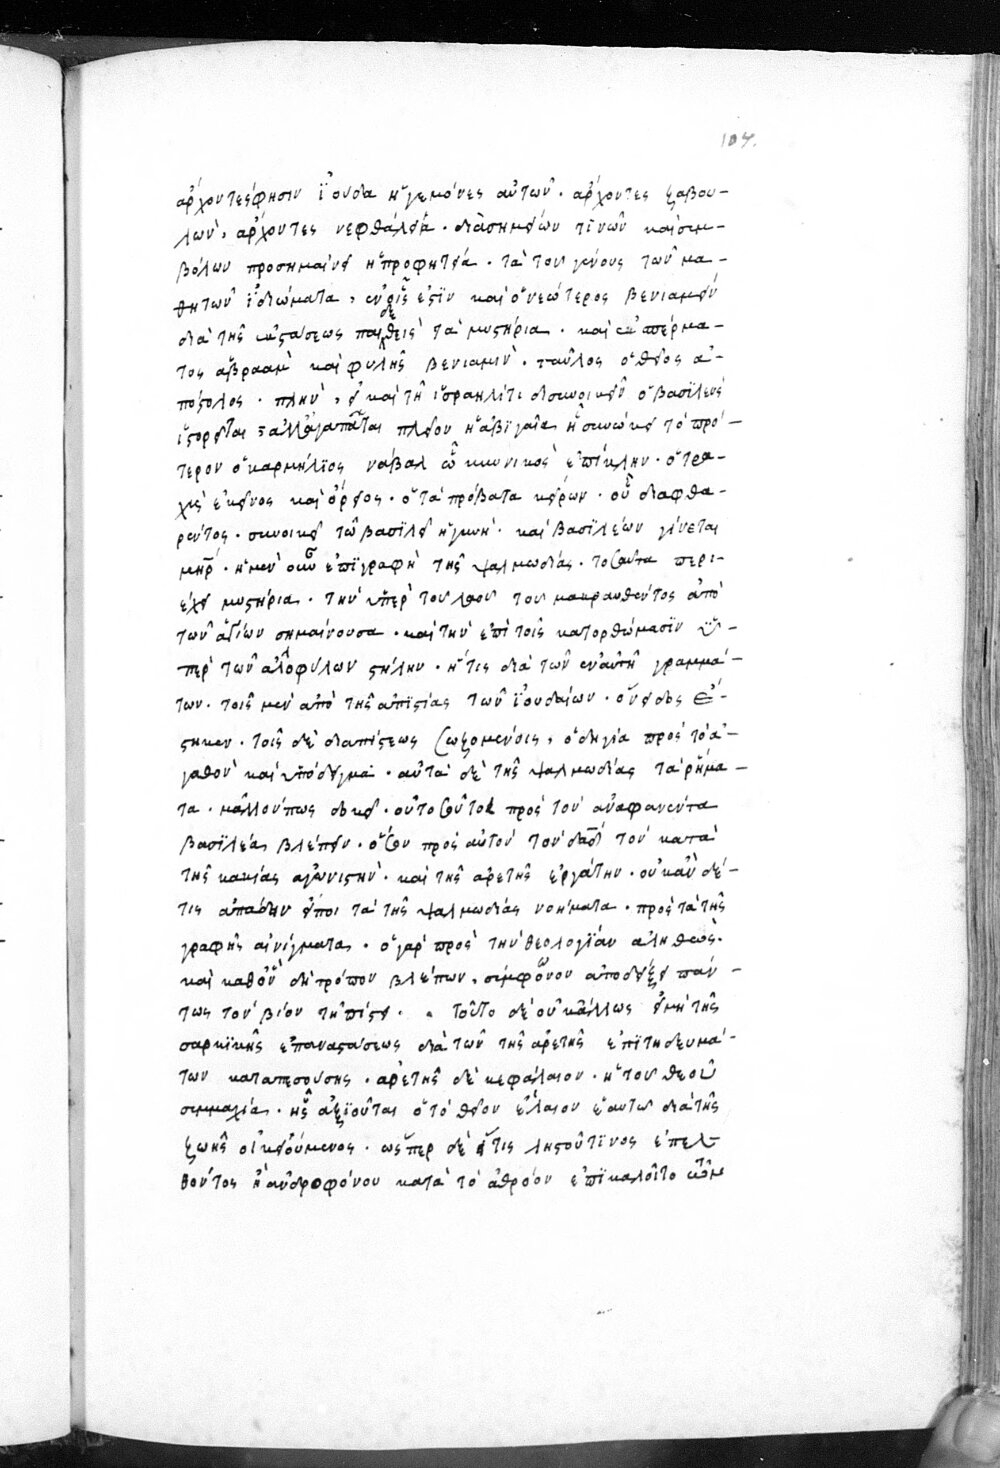 107.
ἄρχοντες φησὶν ἰούδα ἡγεμόνες αὐτῶν. ἄρχοντες ζαβου-
λὼν, ἄρχοντες νεφθαλείμ. διὰ σημείων τινῶν καὶ συμ-
βόλων προσημαίνει ἡ προφητεία. τὰ τοῦ γένους τῶν μα-
θητῶν ἰδιώματα, ἐν οἷς ἐστὶν καὶ ὁ νεώτερος βενιαμεὶν
διὰ τῆς ἐκστάσεως παιδευθεὶς τὰ μυστήρια. καὶ ἐκ σπέρμα-
τος ἀβραὰμ καὶ φυλῆς βενιαμὶν. παῦλος ὁ θεῖος ἀ-
πόστολος. πλὴν, εἰ καὶ τῇ ἰσραηλίτιδι συνοικεῖν ὁ βασϊλεὺς
ἱστορεῖται ἀλλ' ἀγαπᾶται πλεῖον ἡ ἀβιγαία ᾗ συνώκει τὸ πρό-
τερον ὁ καρμήλϊος νάβαλ ὁ κυνικὸς ἐπίκλην. ὁ τρα-
χὺς ἐκεῖνος καὶ ὄρειος. ὁ τὰ πρόβατα κείρων. οὗ διαφθα-
ρέντος. συνοικεῖ τῷ βασϊλεῖ ἡ γυνὴ. καὶ βασϊλέων γίνεται
μηρ. ἡ μὲν οὖν ἐπϊγραφὴ τῆς ψαλμωδίας. τοσαῦτα περι-
έχει μυστήρια. τὴν ὑπὲρ τοῦ λαοῦ τοῦ μακρυνθέντος ἀπὸ
τῶν ἁγίων σημαίνουσα. καὶ τὴν ἐπὶ τοῖς κατορθώμασϊν ὑ-
πὲρ τῶν ἀλλοφύλων στήλην. ἥτις διὰ τῶν ἐν αὐτῇ γραμμά-
των. τοῖς μὲν ἀπὸ τῆς ἀπϊστίας τῶν ἰουδαίων. ὄνειδος ἕ-
στηκεν. τοῖς δὲ διὰ πίστεως σωζομένοις, ὁδηγία πρὸς τὸ ἀ-
γαθὸν καὶ ὑπόδειγμα. αὐτὰ δὲ τῆς ψαλμωδίας τὰ ῥήμα-
τα. μᾶλλόν πως δοκεῖ. οὕτω πρὸς τὸν ἀναφανέντα
βασϊλέα βλέπειν. ὅσον πρὸς αὐτὸν τὸν δαδ τὸν κατὰ
τῆς κακίας ἀγωνιστὴν. καὶ τῆς ἀρετῆς ἐργάτην. οὐκ ἂν δέ
τις ἀπᾴδειν εἴποι τὰ τῆς ψαλμωδίας νοήματα. πρὸς τὰ τῆς
γραφῆς αἰνίγματα. ὁ γὰρ πρὸς τὴν θεολογϊαν ἀληθῶς.
καὶ καθ' ὃν δεῖ τρόπον βλέπων, σύμφωνον ἀποδείξει πάν-
τως τὸν βίον τῇ πίστει. τοῦτο δὲ οὐκ ἄλλως εἰ μὴ τῆς
σαρκϊκῆς ἐπαναστάσεως διὰ τῶν τῆς ἀρετῆς ἐπϊτηδευμά-
των καταπεσούσης. ἀρετῆς δὲ κεφάλαιον. ἡ τοῦ θεοῦ
συμμαχία. ἧς ἀξϊοῦται ὁ τὸ θεῖον ἔλαιον ἑαυτῷ διὰ τῆς
ζωῆς οἰκειούμενος. ὥσπερ δὲ εἴ τις λῃστοῦ τϊνος ἐπελ-
θόντος ἢ ἀνδροφόνου κατὰ τὸ ἀθρόον ἐπϊκαλοῖτο